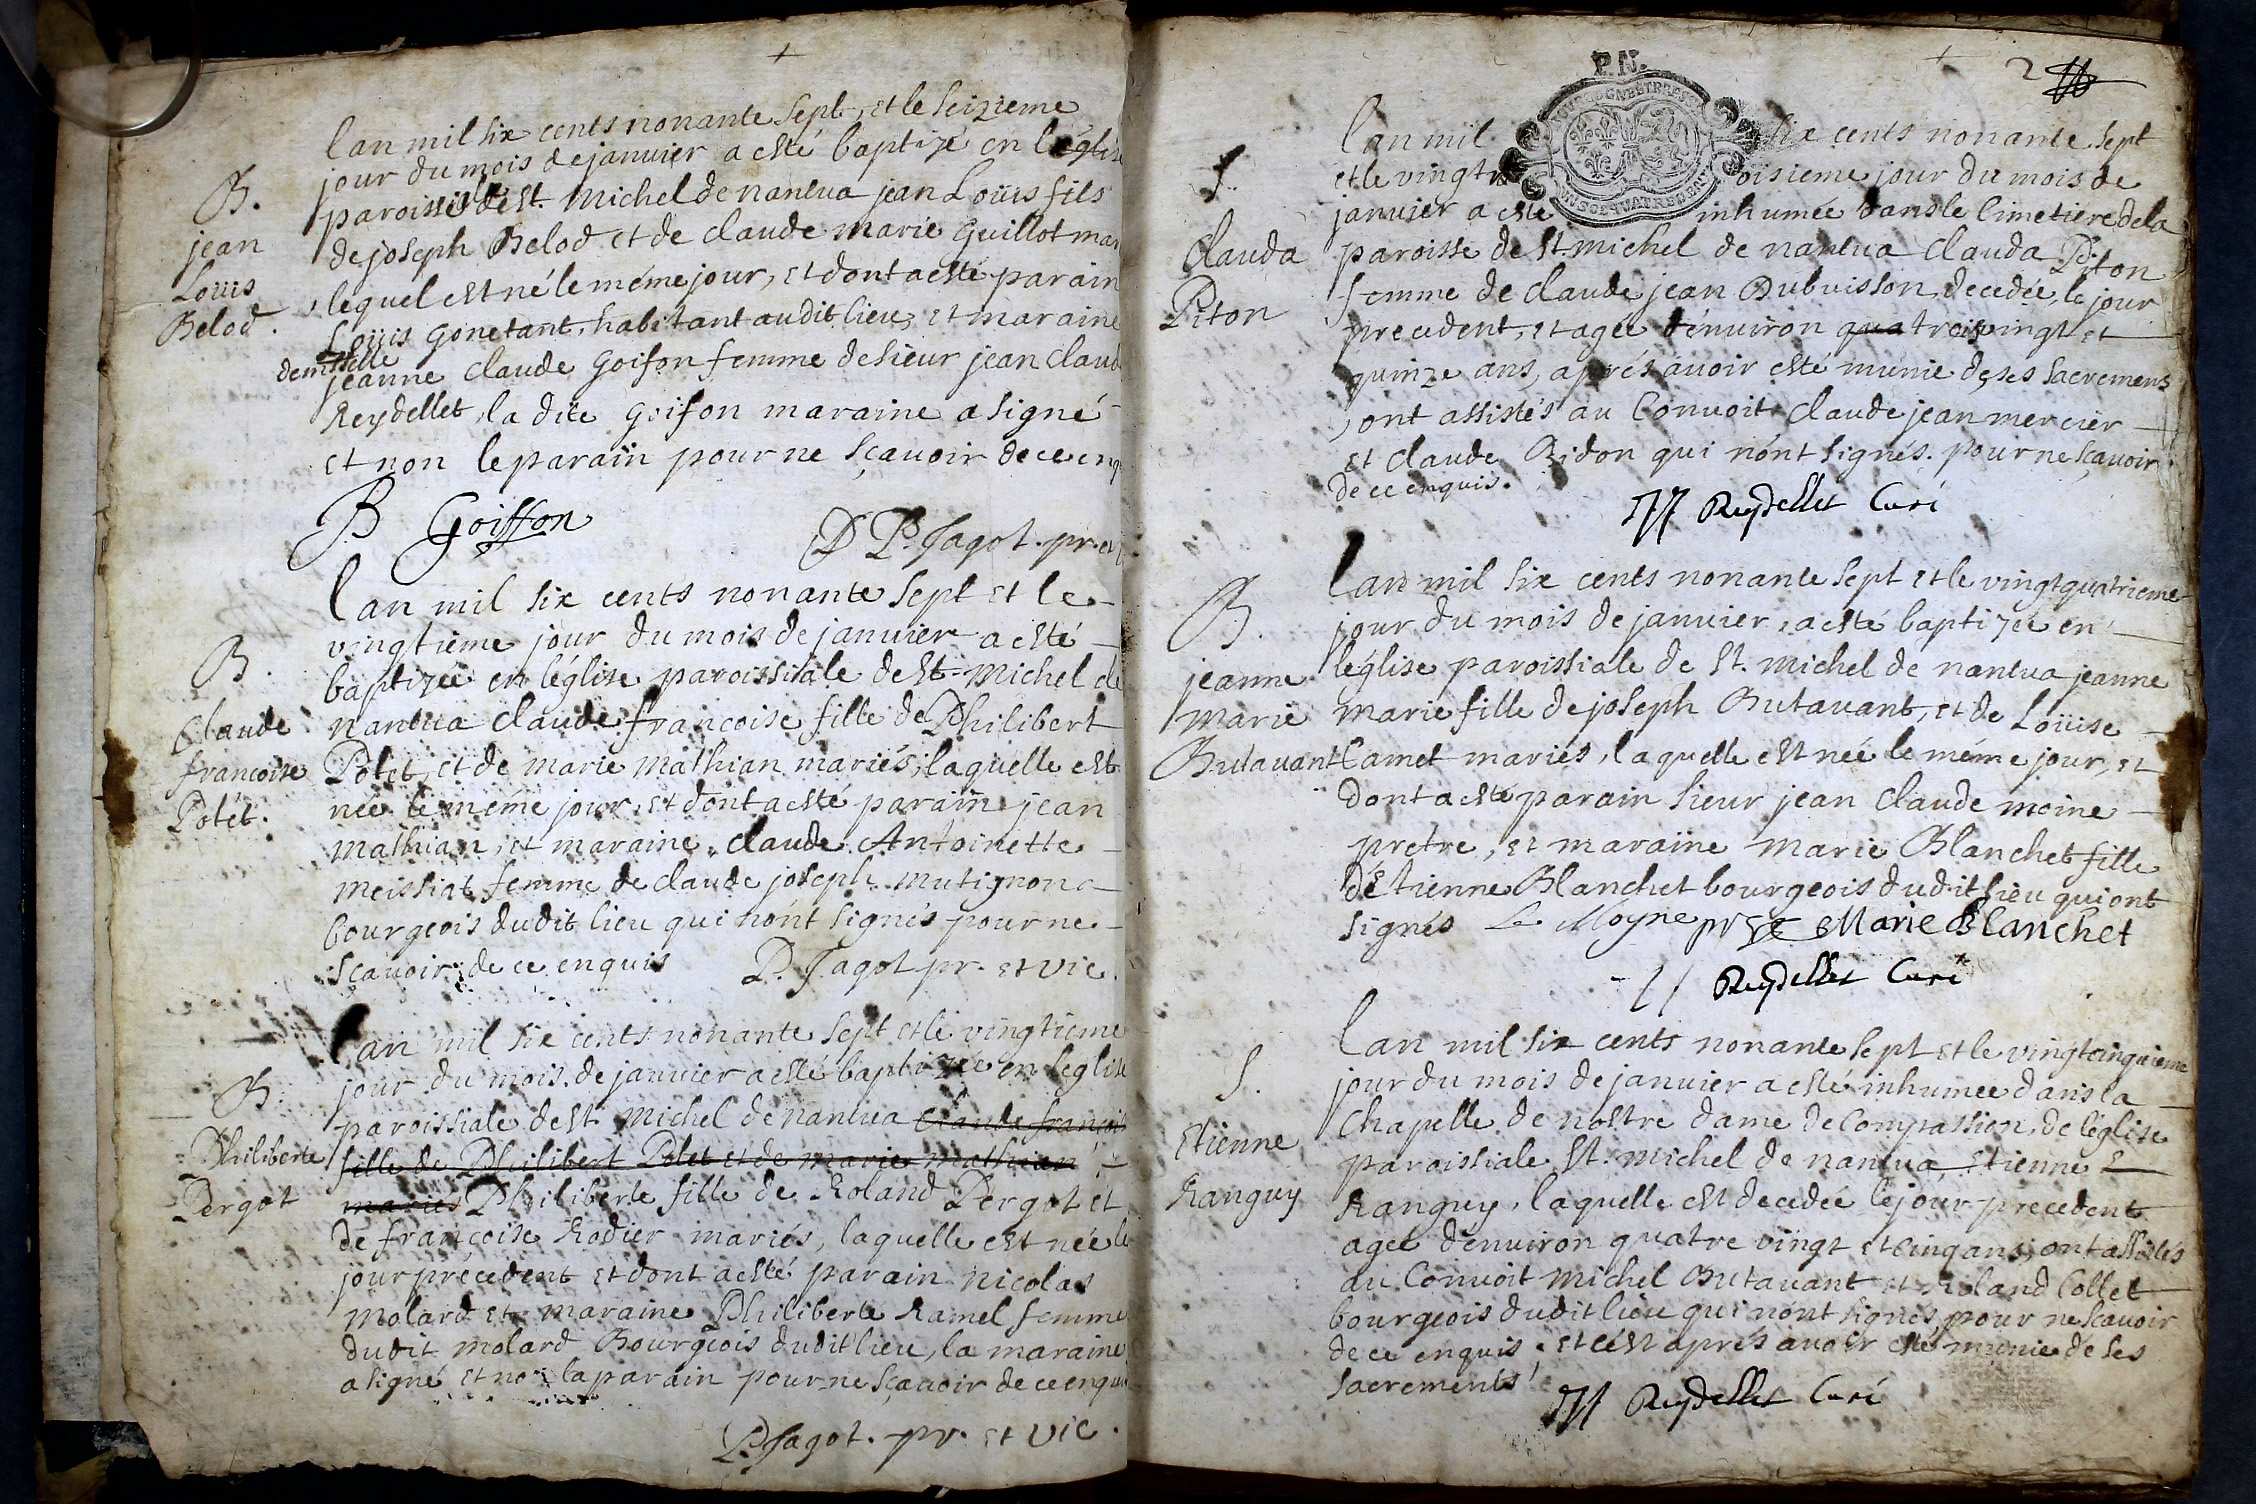 B.
jean
Loüis
Belod.
lan mil six cents nonante sept, et le seizieme
jour du mois de janvier a esté baptizé en l'église
paroissiale de st. Michel de nantua jean Loüis fils
de joseph Belod et de claude marie Guillot mar
lequel est né le méme jour, et dont a esté parain
Loüis gonetant, habitant audit lieu, et maraine
demoiselle
jeanne claude goifon femme de sieur jean claude
Reydellet, la dite goifon maraine a signé
et non le parain pour ne sçavoir de ce enq
B Goiffon
D P. Jagot. pr. et
B.
Claude
françoise
Potet.
lan mil six cents nonante sept et le
vingtieme jour du mois de janvier a esté
baptizée en l'église paroissiale de st. Michel de
nantua claude françoise fille de Philibert
Potet, et de marie mathian mariés, laquelle est
née le méme jour, et dont a esté parain jean
mathian, et maraine claude Antoinette
meissiat femme de claude joseph mutignon
bourgeois dudit lieu qui n'ont signés pour ne
sçavoir de ce enquis P. Jagot pr. et vic.
B.
Philiberte
Pergot
lan mil six cents nonante sept et le vingtieme
jour du mois de janvier a esté baptizée en l'eglise
paroissiale de st. Michel de nantua claude françoise
fille de Philibert Potet et de marie mathian
mariés Philiberte fille de Roland Pergot et
de françoise Rodier mariés, laquelle est née le
jour precedent et dont a esté parain nicolas
molard et maraine Philiberte Ramel femme
dudit molard Bourgeois dudit lieu, la maraine
a signé et non la parain pour ne sçavoir de ce enquis
P. Jagot. pr. et vic.
P.N.
2
S.
Clauda
Piton
lan mil six cents nonante sept
et le vingt troisieme jour du mois de
janvier a esté inhumée dans le cimetiere de la
paroisse de st. michel de nantua clauda Piton
femme de claude jean Dubuisson, decedée, le jour
precedent, et agée d'environ qua trois vingt et
quinze ans, aprés avoir esté munie de ses sacremens
, ont assistés au Convoit claude jean mercier
et claude Bidon qui n'ont signés. pour ne sçavoir
de ce enquis.
Reydellet Curé
B.
jeanne
Marie
Butavant
lan mil six cents nonante sept et le vingt quatrieme
jour du mois de janvier, a esté baptizée en
l'église paroissiale de st. Michel de nantua jeanne
marie fille de joseph Butavant, et de Loüise
Camet mariés, laquelle est née le méme jour, et
dont a esté parain sieur jean claude moine
pretre, et maraine marie Blanchet fille
d'Etienne Blanchet bourgeois dudit lieu qui ont
signés Le Moyne ptre Marie Blanchet
Reydellet Curé
S.
Etienne
Ranguy
lan mil six cents nonante sept et le vingt cinquieme
jour du mois de janvier a esté inhumée dans la
Chapelle de nostre dame de Compassion, de l'église
paroissiale St. Michel de nantua Etienne
Ranguy, laquelle est decedée le jour precedent
agée d'environ quatre vingt et cinq ans, ont assistés
au Convoit Michel Butavant et Roland Collet
bourgeois dudit lieu qui n'ont signés, pour ne sçavoir
de ce enquis. et c'est aprés avoir esté munie de ses
sacrements
Reydellet Curé